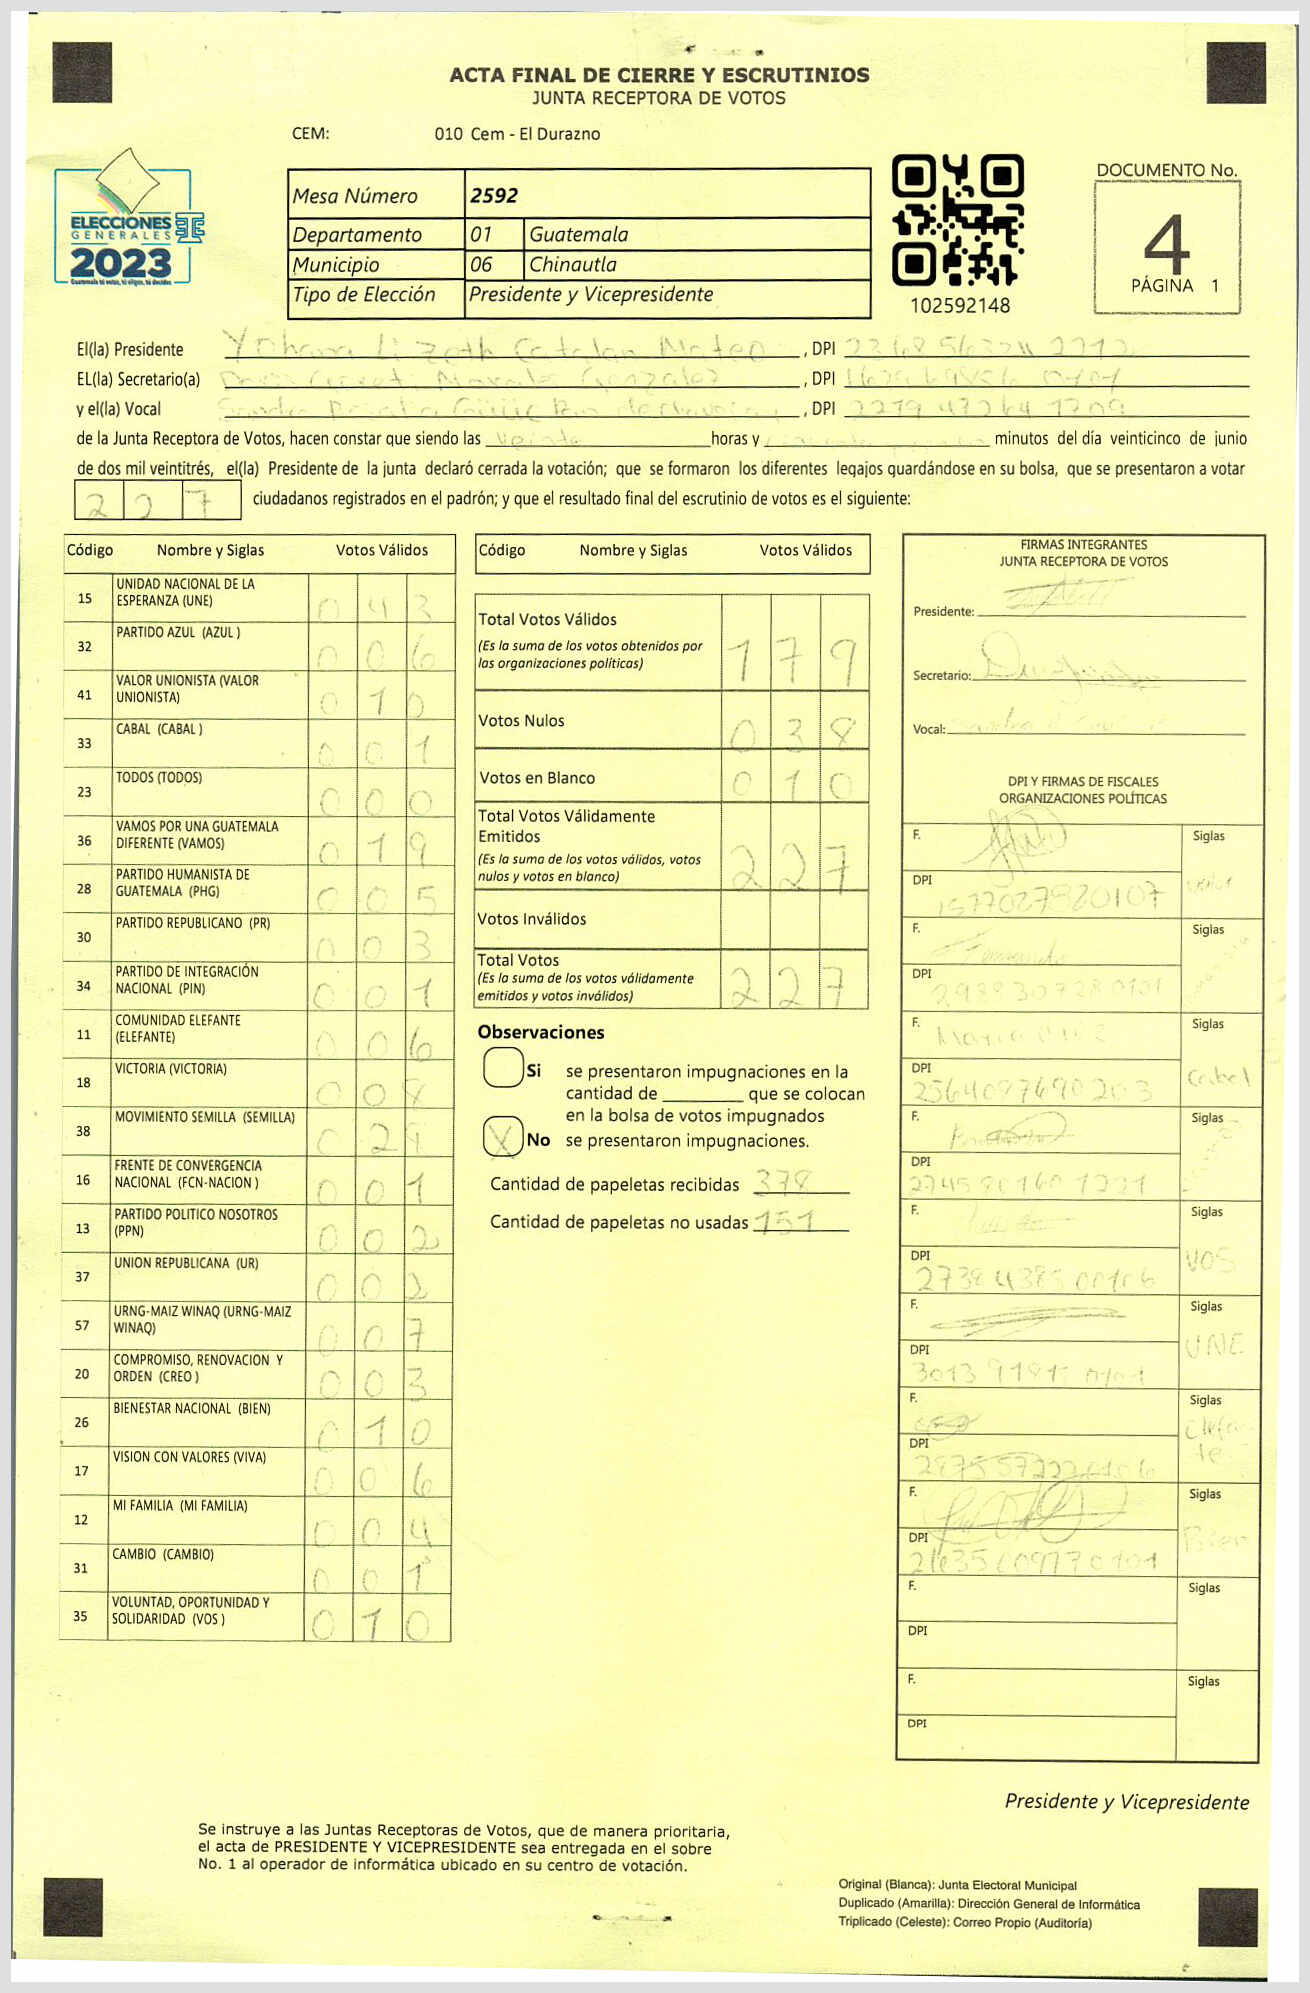 ACTA FINAL DE CIERRE Y ESCRUTINIOS
JUNTA RECEPTORA DE VOTOS
CEM: 010 Cem - El Durazno
ELECCIONES
GENERALES
2023
Mesa Número 2592
Departamento 01 Guatemala
Municipio 06 Chinautla
Tipo de Elección Presidente y Vicepresidente
102592148
DOCUMENTO No.
4
PÁGINA 1
El(la) Presidente Catalan Mateo , DPI
EL(la) Secretario(a) Gonzalez , DPI
y el(la) Vocal , DPI
de la Junta Receptora de Votos, hacen constar que siendo las veinte horas y minutos del día veinticinco de junio
de dos mil veintitrés, el(la) Presidente de la junta declaró cerrada la votación; que se formaron los diferentes legajos guardándose en su bolsa, que se presentaron a votar
227 ciudadanos registrados en el padrón; y que el resultado final del escrutinio de votos es el siguiente:
Código Nombre y Siglas Votos Válidos
15 UNIDAD NACIONAL DE LA ESPERANZA (UNE) 0 4 3
32 PARTIDO AZUL (AZUL ) 0 0 6
41 VALOR UNIONISTA (VALOR UNIONISTA) 0 1 0
33 CABAL (CABAL ) 0 0 1
23 TODOS (TODOS) 0 0 0
36 VAMOS POR UNA GUATEMALA DIFERENTE (VAMOS) 0 1 9
28 PARTIDO HUMANISTA DE GUATEMALA (PHG) 0 0 5
30 PARTIDO REPUBLICANO (PR) 0 0 3
34 PARTIDO DE INTEGRACIÓN NACIONAL (PIN) 0 0 1
11 COMUNIDAD ELEFANTE (ELEFANTE) 0 0 6
18 VICTORIA (VICTORIA) 0 0 8
38 MOVIMIENTO SEMILLA (SEMILLA) 0 2
16 FRENTE DE CONVERGENCIA NACIONAL (FCN-NACION ) 0 0 1
13 PARTIDO POLITICO NOSOTROS (PPN) 0 0 2
37 UNION REPUBLICANA (UR) 0 0 2
57 URNG-MAIZ WINAQ (URNG-MAIZ WINAQ) 0 0 7
20 COMPROMISO, RENOVACION Y ORDEN (CREO ) 0 0 3
26 BIENESTAR NACIONAL (BIEN) 0 1 0
17 VISION CON VALORES (VIVA) 0 0 6
12 MI FAMILIA (MI FAMILIA) 0 0 4
31 CAMBIO (CAMBIO) 0 0 1
35 VOLUNTAD, OPORTUNIDAD Y SOLIDARIDAD (VOS ) 0 1 0
Código Nombre y Siglas Votos Válidos
Total Votos Válidos 1 7 9
(Es la suma de los votos obtenidos por
las organizaciones políticas)
Votos Nulos 0 3 8
Votos en Blanco 0 1 0
Total Votos Válidamente
Emitidos 2 2 7
(Es la suma de los votos válidos, votos
nulos y votos en blanco)
Votos Inválidos
Total Votos 2 2 7
(Es la suma de los votos válidamente
emitidos y votos inválidos)
Observaciones
Si se presentaron impugnaciones en la
cantidad de ________ que se colocan
en la bolsa de votos impugnados
X No se presentaron impugnaciones.
Cantidad de papeletas recibidas 378
Cantidad de papeletas no usadas 151
FIRMAS INTEGRANTES
JUNTA RECEPTORA DE VOTOS
Presidente:
Secretario:
Vocal:
DPI Y FIRMAS DE FISCALES
ORGANIZACIONES POLÍTICAS
F. Siglas
DPI 1577027920107 valor
F. Siglas
DPI
F. Siglas
DPI 2564097690203 Cabal
F. Siglas
DPI
F. Siglas
DPI VOS
F. Siglas
DPI UNE
F. Siglas
DPI Elefante
F. Siglas
DPI Bien
F. Siglas
DPI
F. Siglas
DPI
Presidente y Vicepresidente
Se instruye a las Juntas Receptoras de Votos, que de manera prioritaria,
el acta de PRESIDENTE Y VICEPRESIDENTE sea entregada en el sobre
No. 1 al operador de informática ubicado en su centro de votación.
Original (Blanca): Junta Electoral Municipal
Duplicado (Amarilla): Dirección General de Informática
Triplicado (Celeste): Correo Propio (Auditoría)